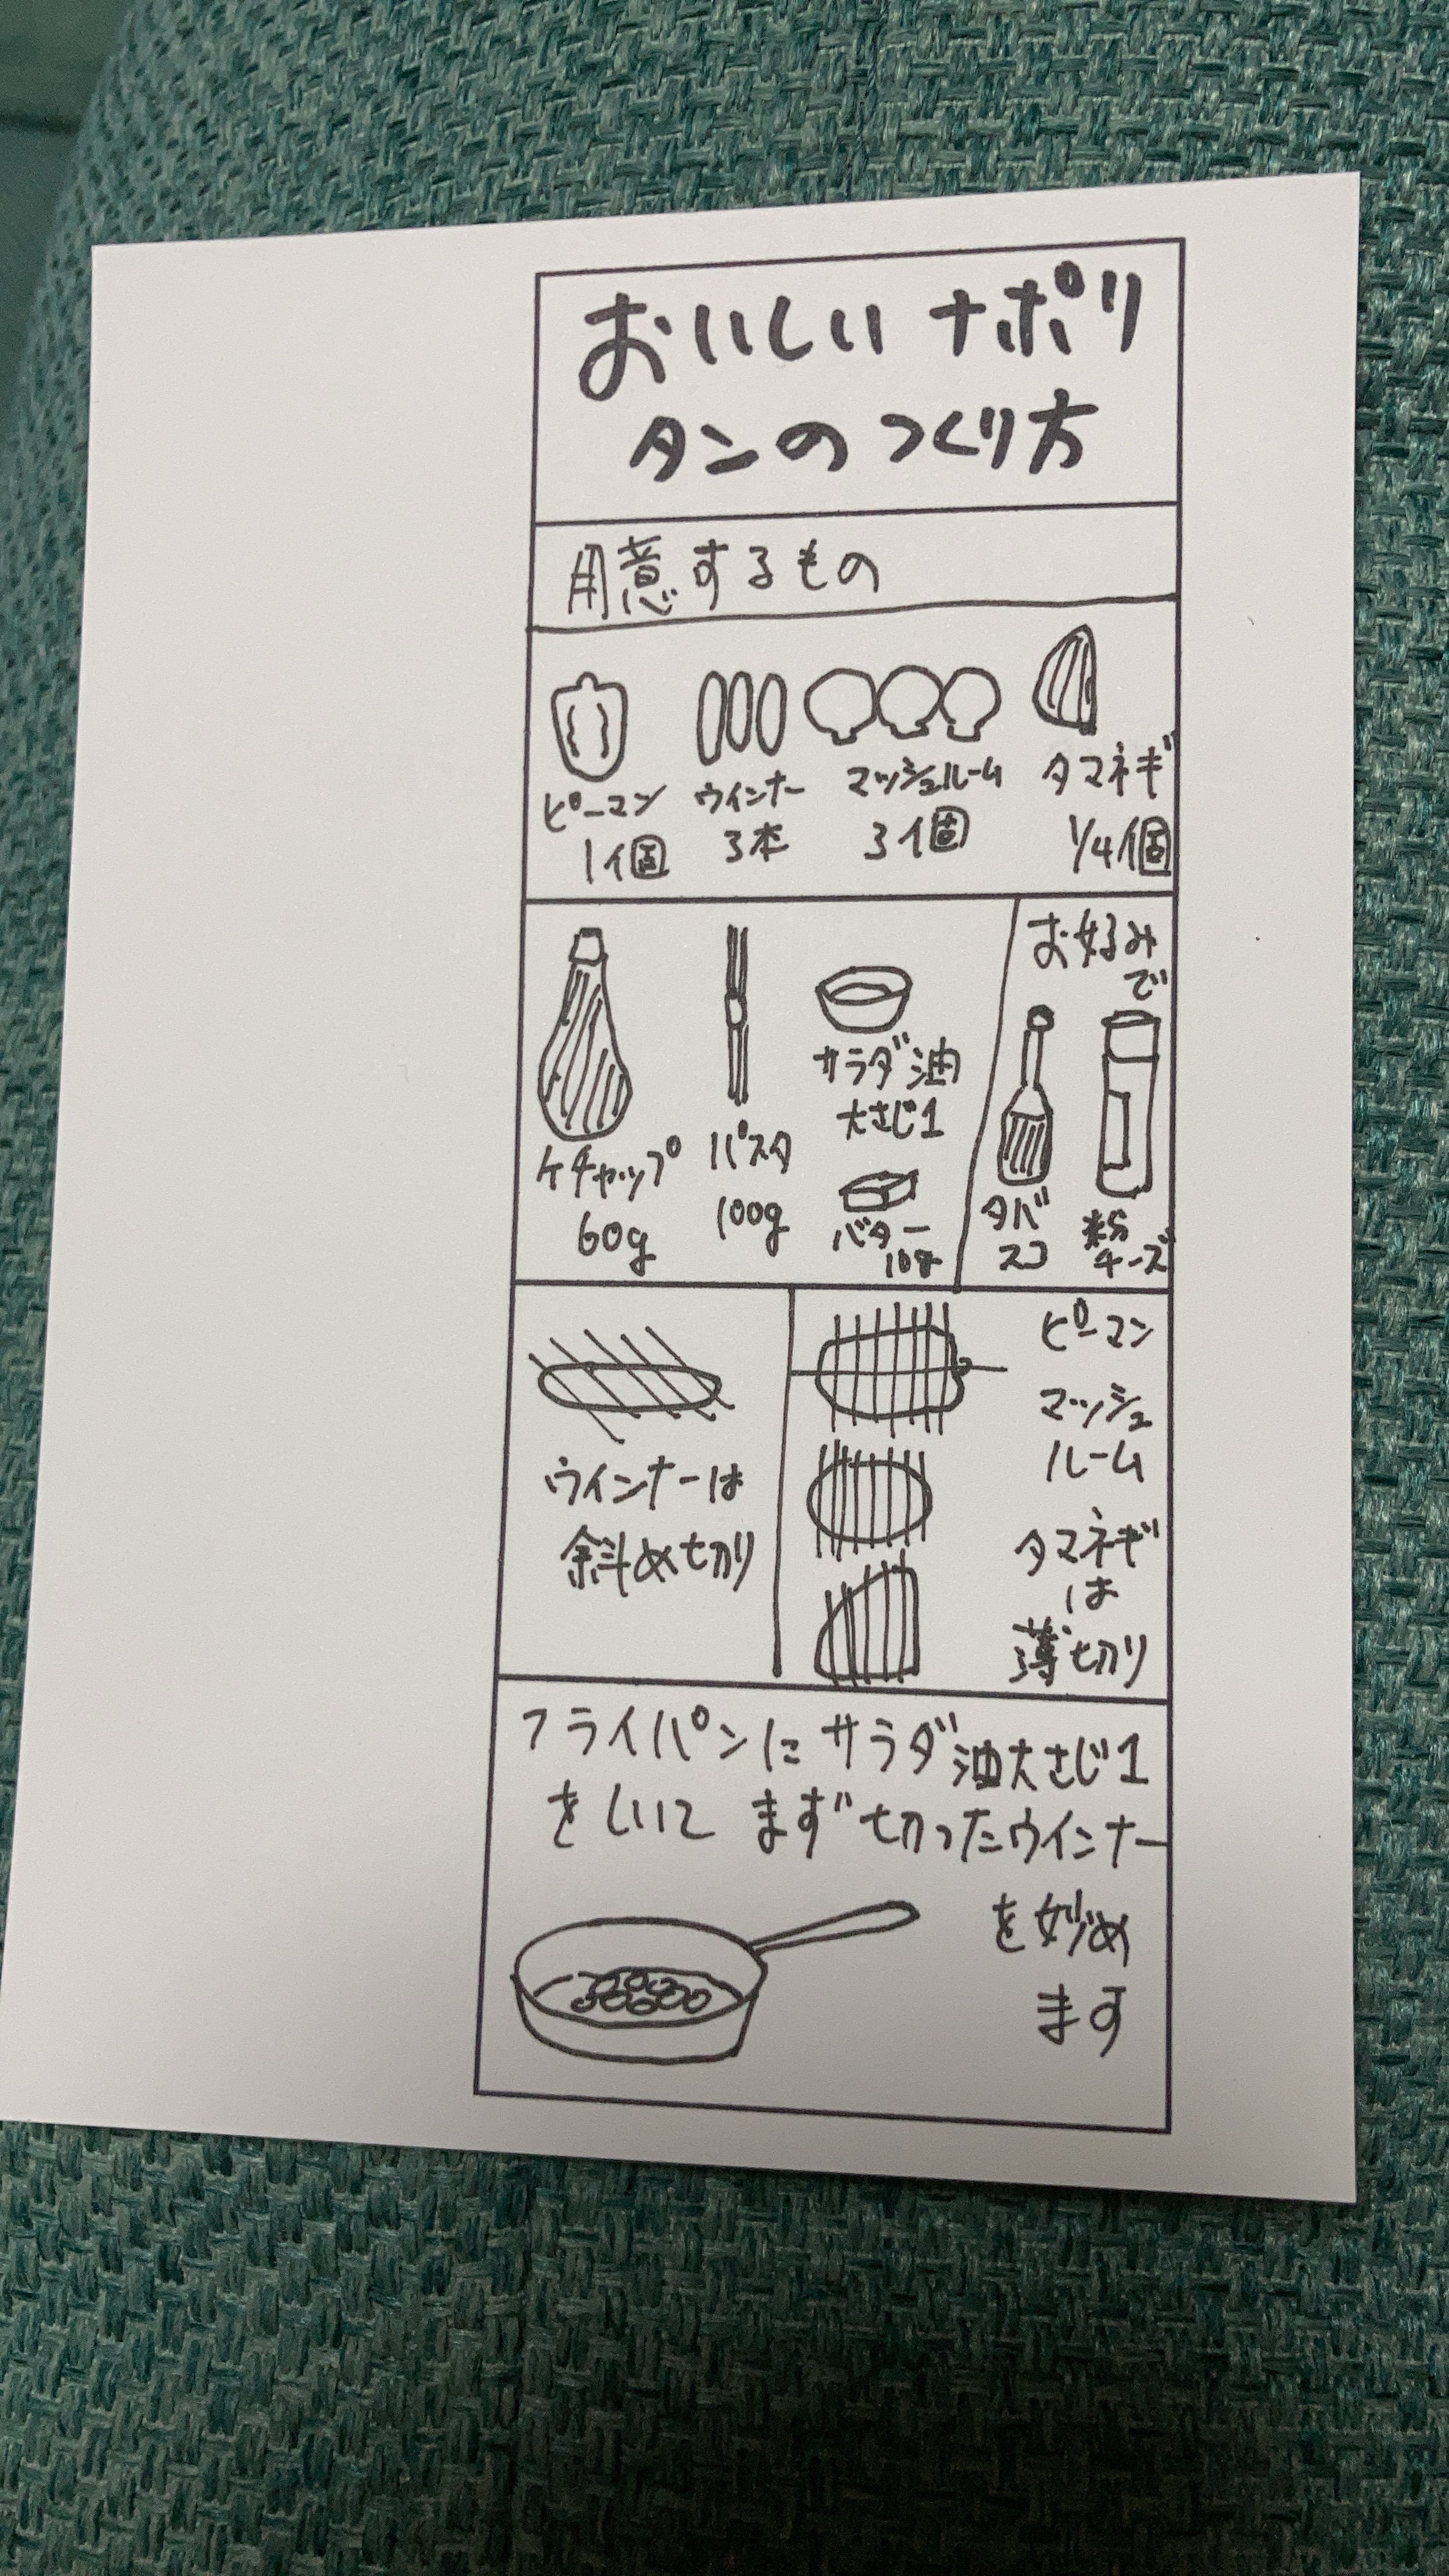 おいしいナポリ
タンのつくり方
用意するもの
ピーマン
1個
ウインナー
3本
マッシュルーム
3個
タマネギ
1/4個
ケチャップ
60g
パスタ
100g
サラダ油
大さじ1
バター
10g
お好み
で
タバ
スコ
粉
チーズ
ウインナーは
斜め切り
ピーマン
マッシュ
ルーム
タマネギ
は
薄切り
フライパンにサラダ油大さじ1
をしいて まず切ったウインナー
を炒め
ます